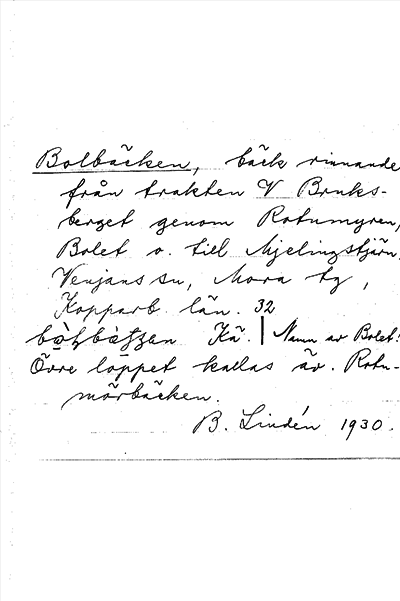 Bolbäcken, bäck rinnande
från trakten V Bruks-
berget genom Rotumyren,
Bolet o. till Mjelingstjärn.
Venjans sn, Mora tg,
Kopparb. län. 32
Kä. | Namn av Bolet!
Övre loppet kallas äv. Rotu-
mörbäcken.
B. Lindén 1930.